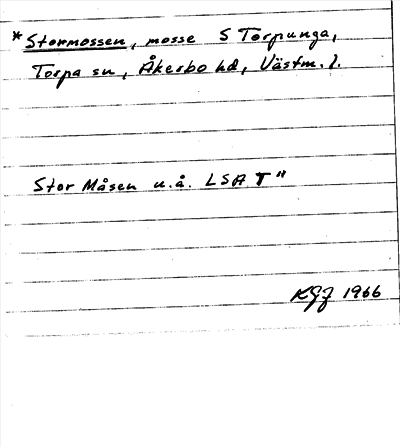 *Stormossen, mosse S Torpunga,
Torpa sn, Åkerbo hd, Västm. l.
Stor Måsen u.å. LSA T"
KGJ 1966